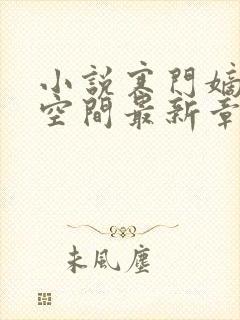 小說寒門嫡
空間最新章
未風塵